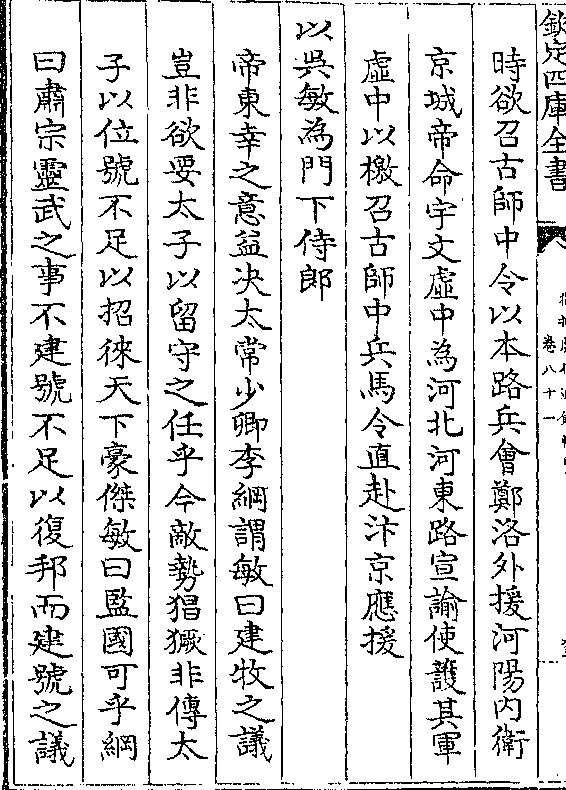 欽定四庫全書
卷八十一
時欲召古師中令以本路兵會鄭洛外援河陽内衛
京城帝命宇文虛中為河北河東路宣諭使護其軍
虛中以檄召古師中兵馬令直赴汴京應援
以吳敏為門下侍郎
帝東幸之意益決太常少卿李綱謂敏曰建牧之議
豈非欲委太子以留守之任乎今敵勢猖獗非傳太
子以位號不足以招徠天下豪傑敏曰監國可乎綱
曰肅宗靈武之事不建號不足以復邦而建號之議